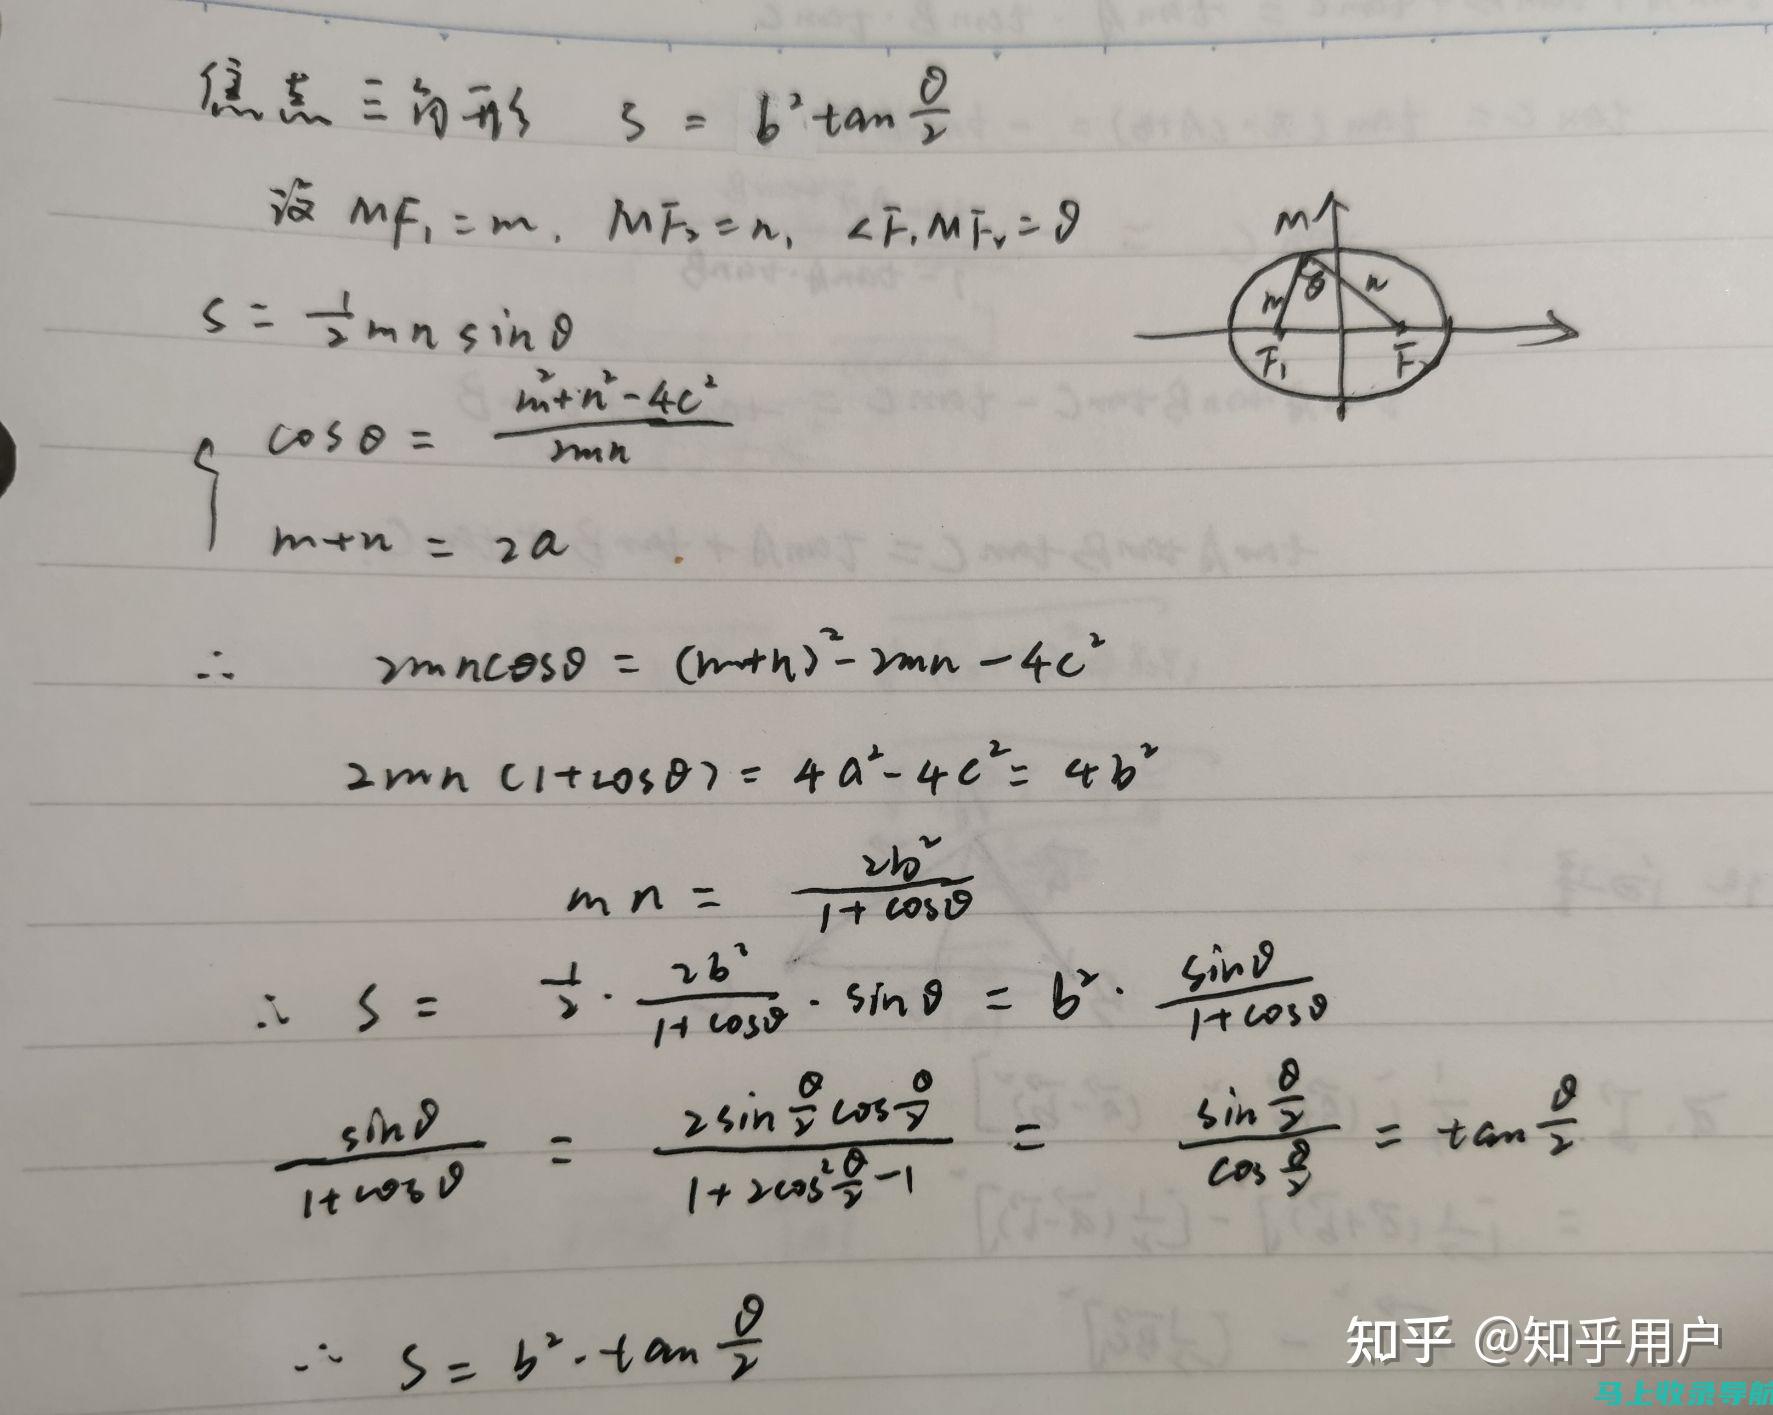 焦点三角形 S = b² tan θ/2
设 MF₁ = m, MF₂ = n, ∠F₁MF₂ = θ
M
θ
m
n
F₁
F₂
S = 1/2 mn sinθ
cosθ = (m² + n² - 4c²)/(2mn)
m+n = 2a
∴ 2mncosθ = (m+n)² - 2mn - 4c²
2mn (1+cosθ) = 4a² - 4c² = 4b²
mn = 2b²/(1+cosθ)
∴ S = 1/2 · 2b²/(1+cosθ) · sinθ = b² · sinθ/(1+cosθ)
sinθ/(1+cosθ) = (2sin θ/2 cos θ/2)/(1+2cos² θ/2 - 1) = (sin θ/2)/(cos θ/2) = tan θ/2
∴ S = b² · tan θ/2
知乎 @知乎用户
马上收录导航